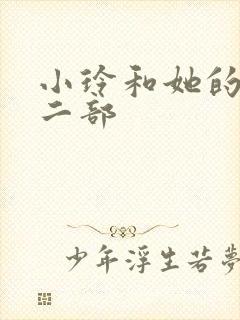 小玲和她的
二部
少年浮生若夢